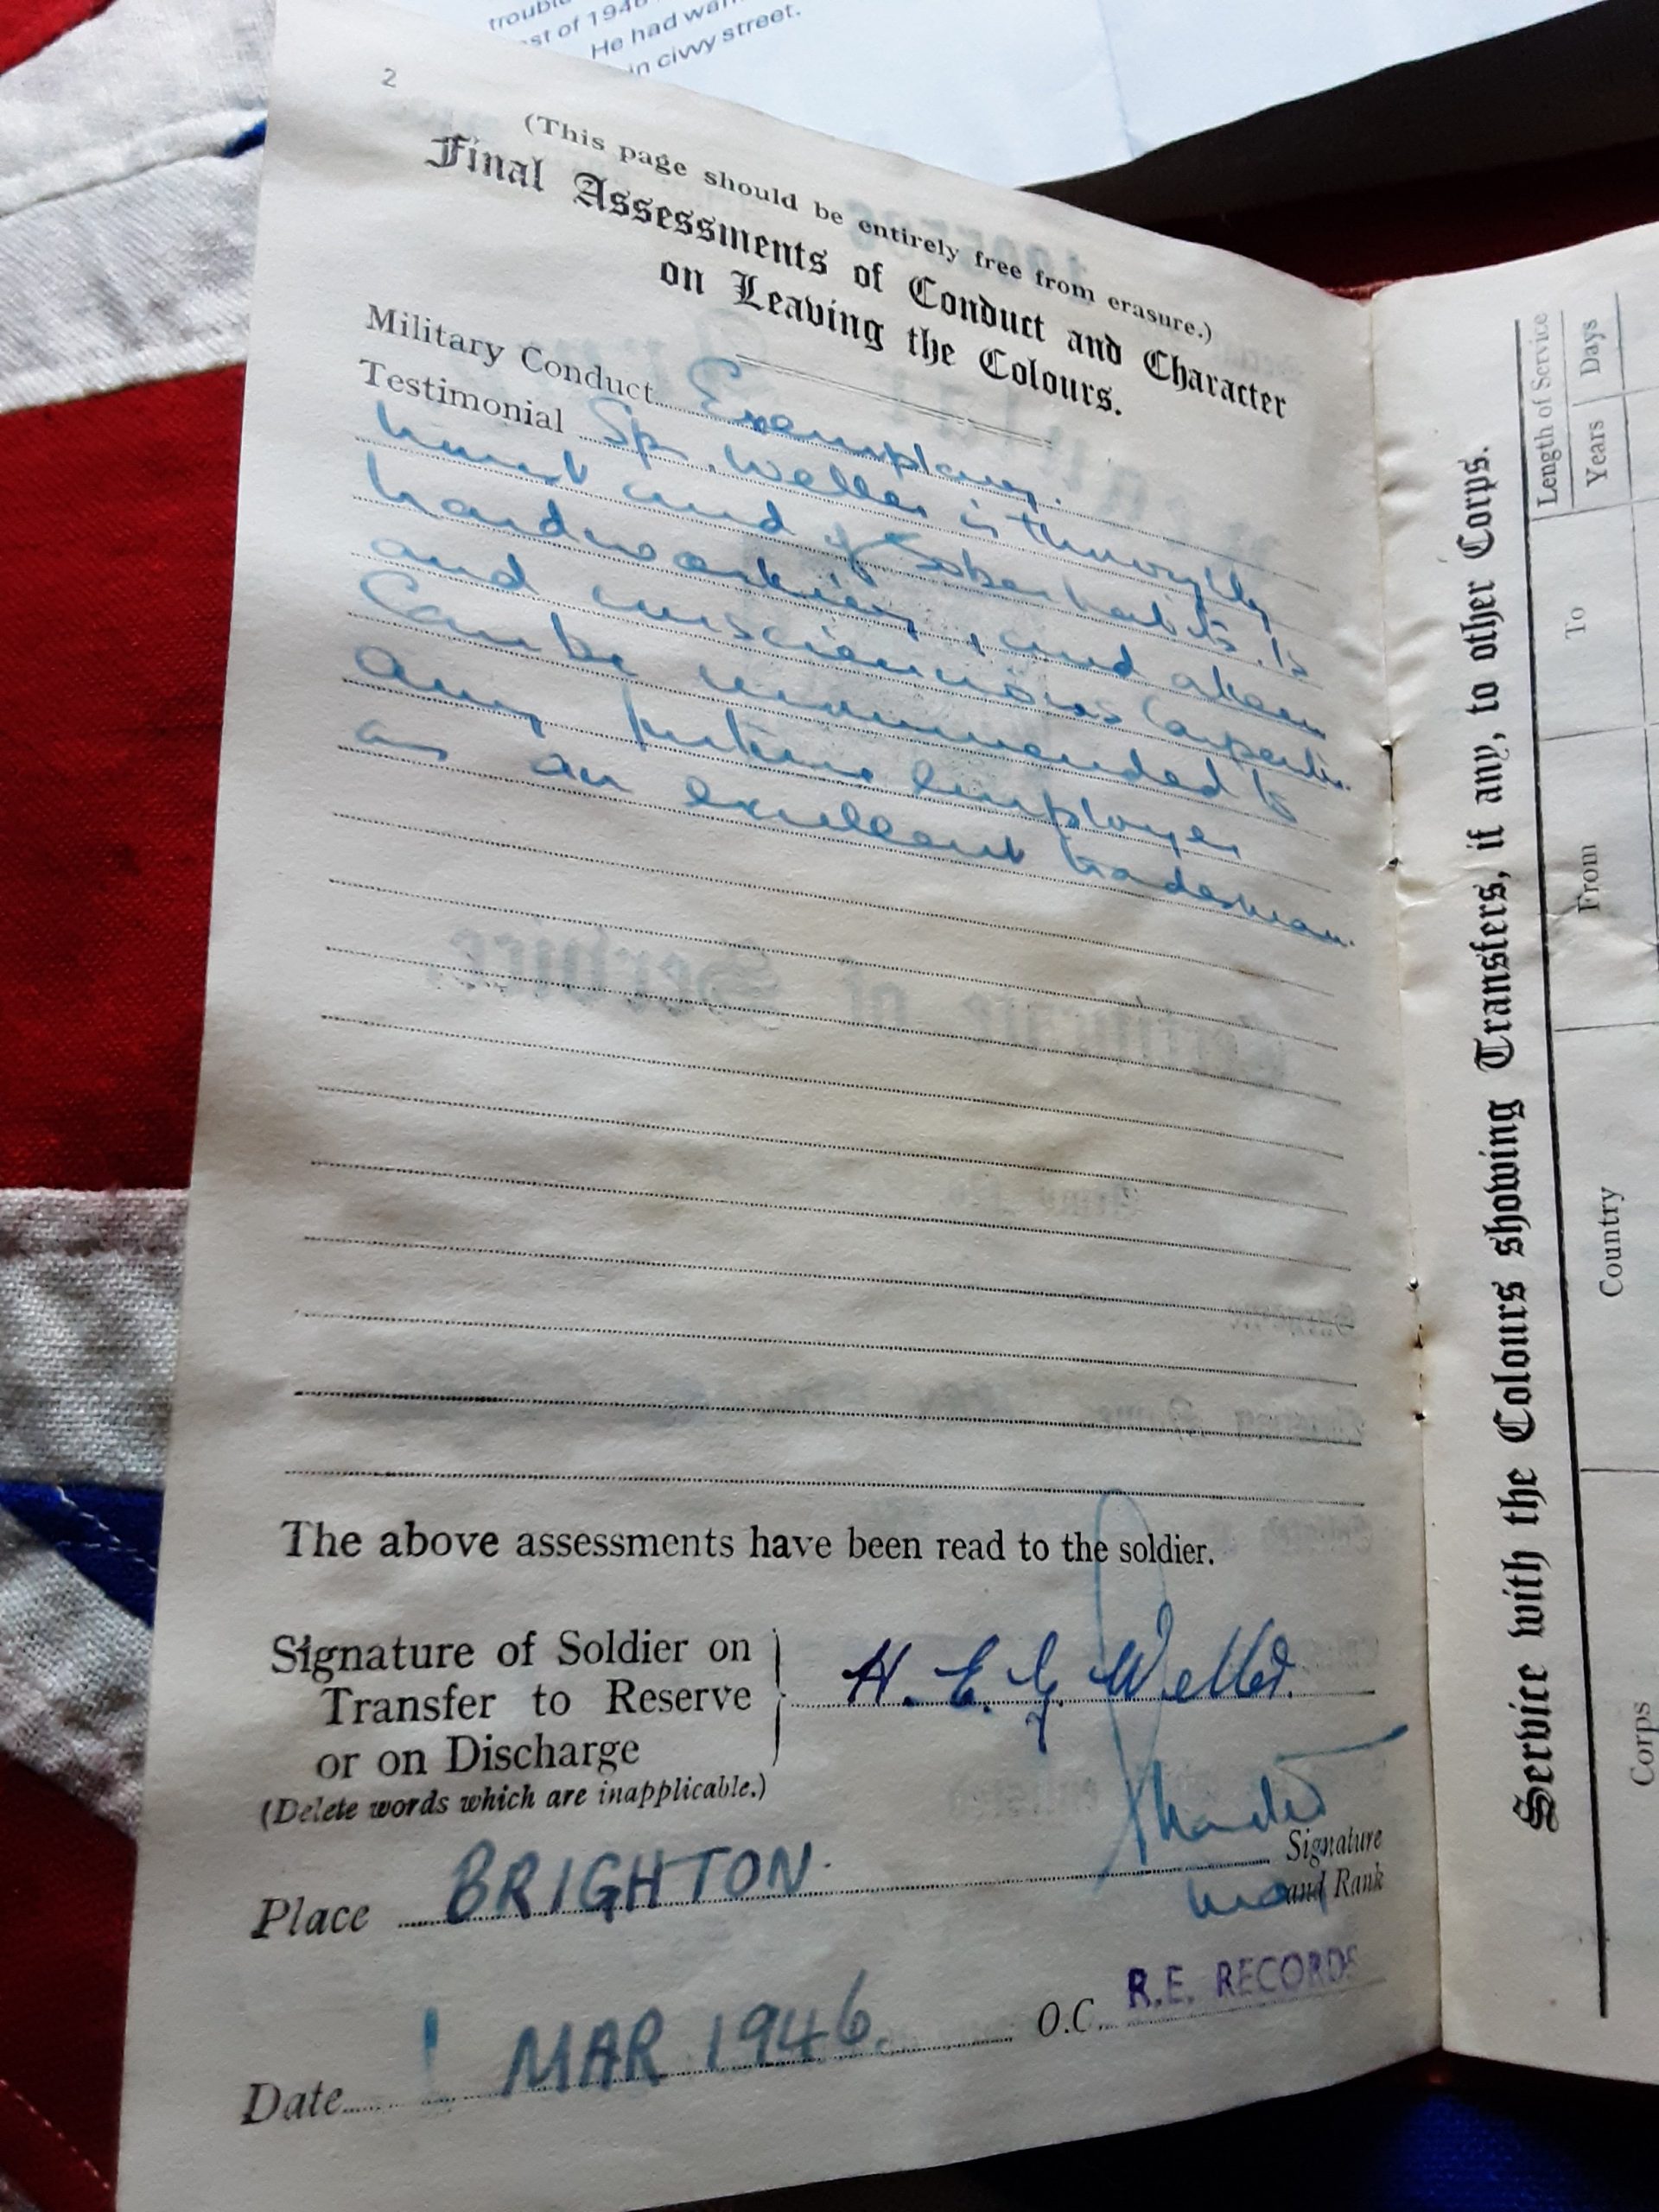 troubl
st of 1946
He had wan
in civvy street.
2
(This page should be entirely free from erasure.)
Final Assessments of Conduct and Character
on Leaving the Colours.
Military Conduct Exemplary.
Testimonial Spr. Weller is thoroughly
honest and of sober habits. Is
hardworking, and a keen
and conscientious Carpenter.
Can be recommended to
any future employer
as an excellent tradesman.
The above assessments have been read to the soldier.
Signature of Soldier on
Transfer to Reserve
or on Discharge
H. E. G. Weller.
(Delete words which are inapplicable.)
Signature
and Rank
Place BRIGHTON.
Date 1 MAR 1946.
O.C. R.E. RECORDS
Service with the Colours showing Transfers, if any, to other Corps.
Corps
Country
From
To
Length of Service
Years
Days
Certificate of Service